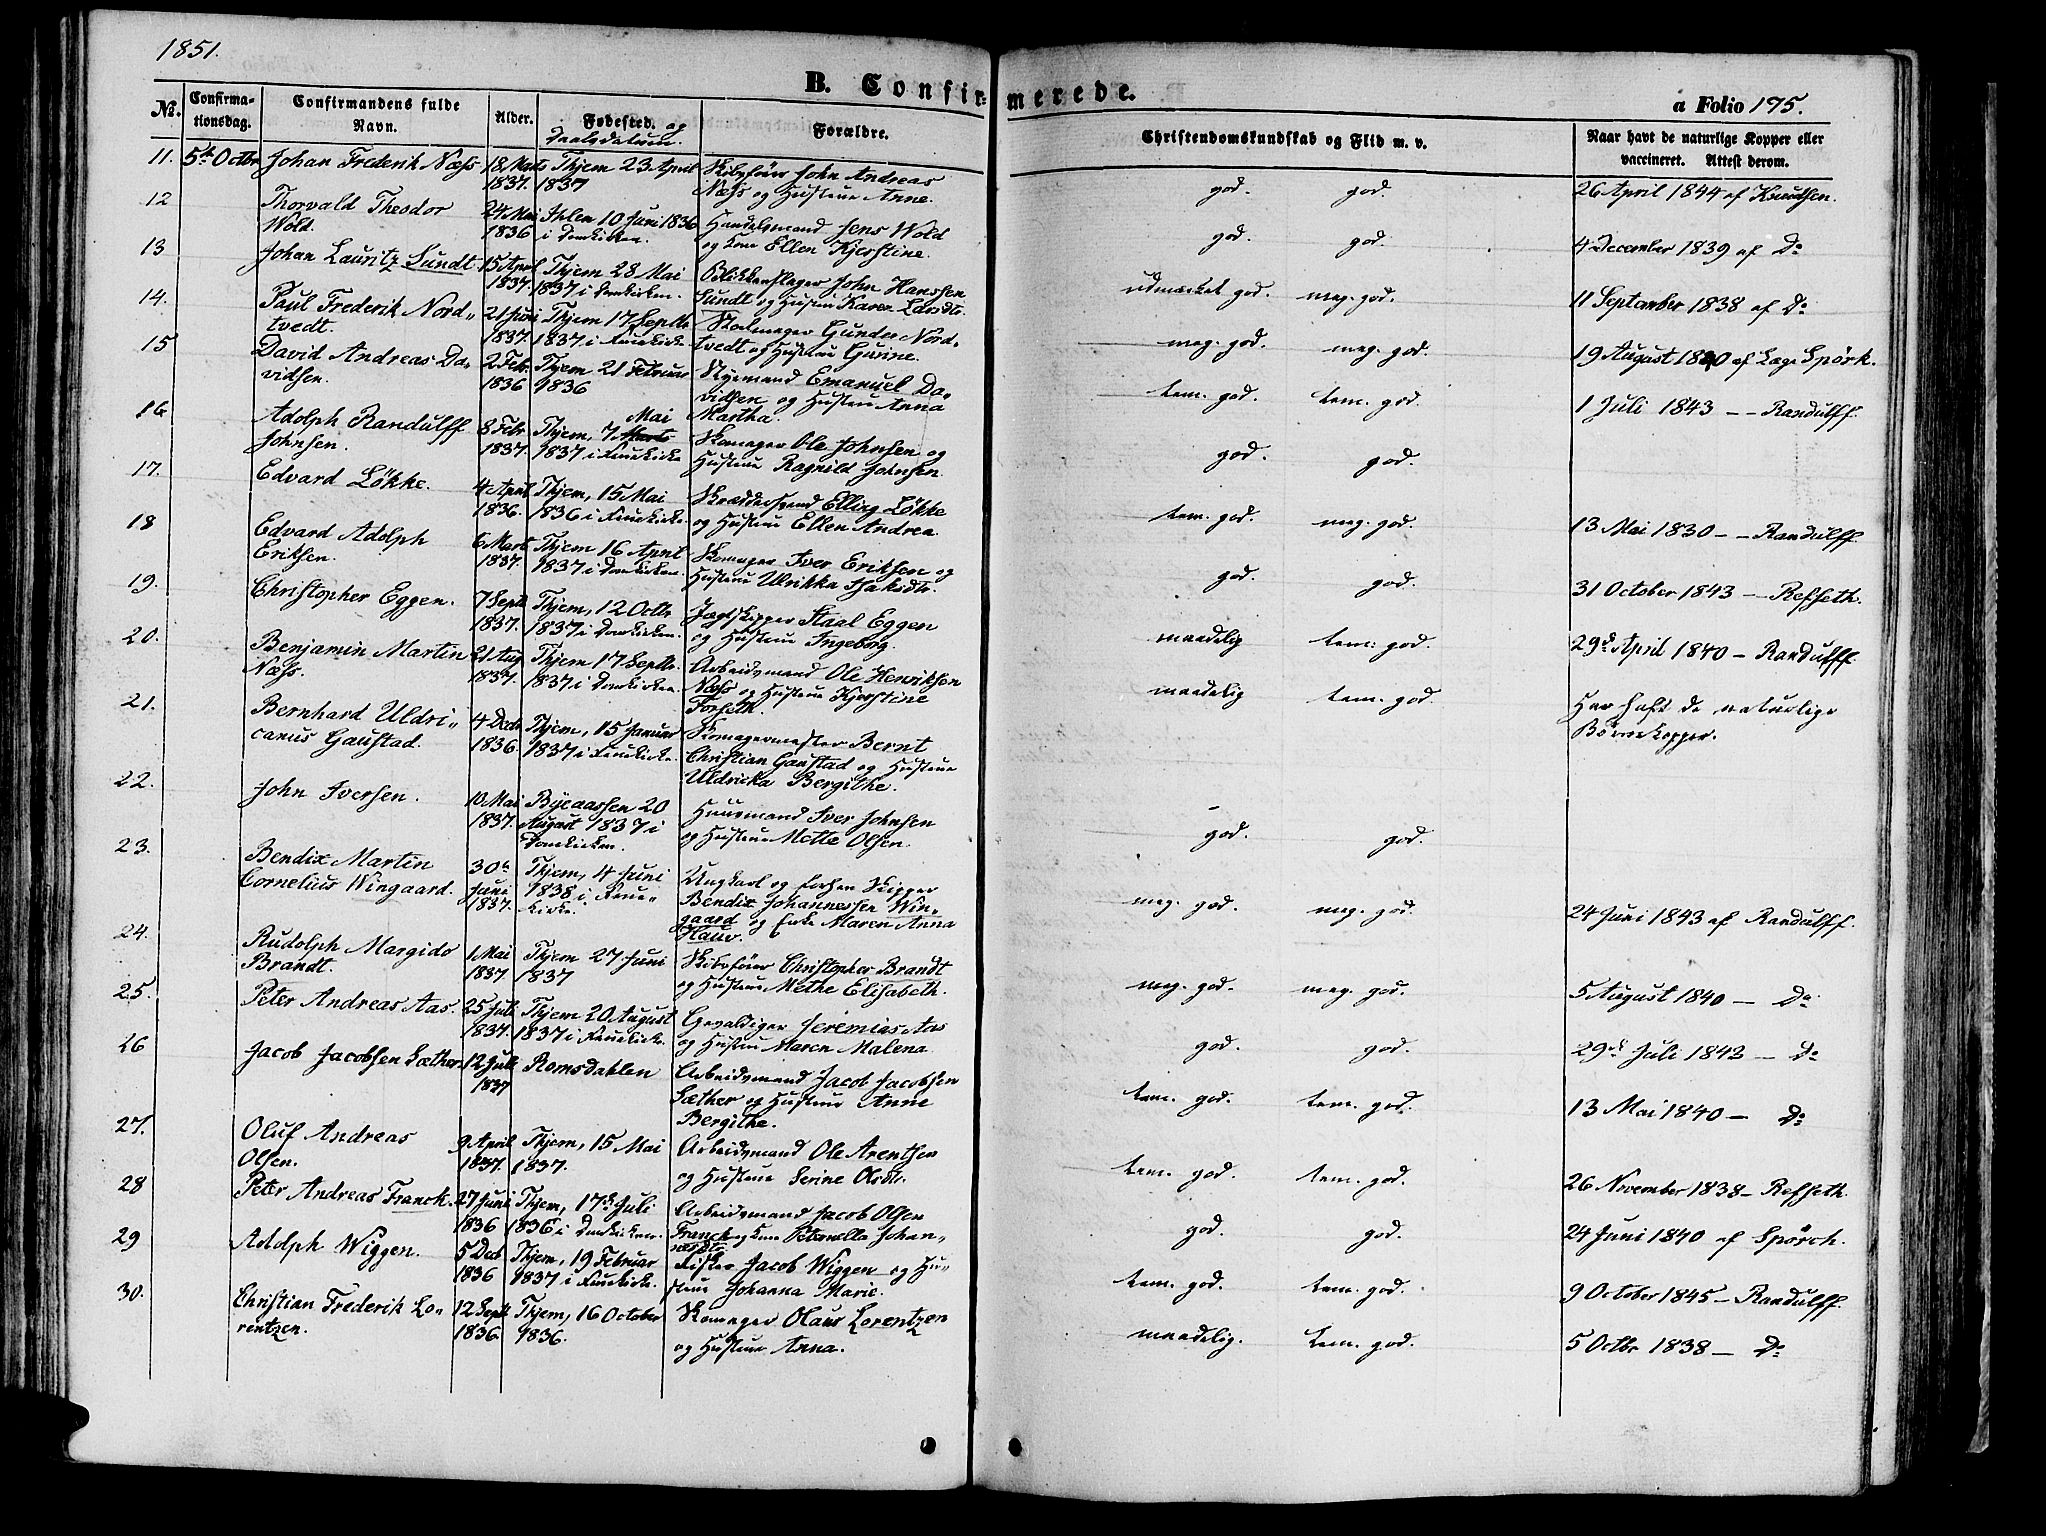 1851.
B. Confir-
merede.
a Folio 195.
№. Confirma-tionsdag. Confirmandens fulde Navn. Alder. Fødested. og Daabsdatum. Forældre. Christendomskundskab og Flid m. v. Naar havt de naturlige Kopper eller vaccineret. Attest derom.
11. 5te Octbr Johan Frederik Næss 18 Marts Thjem 23 April Skibsfører John Andreas
1837. 1837 Næss og Hustrue Anne.
god. god. 26 April 1844 af Knudtsen.
12 Thorvald Theodor 24 Mai Ihlen 10 Juni 1836 Handelsmand Jens Wold
Wold. 1836 i Domkirken. og Kone Ellen Kjerstine.
god. god. 4 December 1839 af Do
13 Johan Lauritz Sundt 15 April Thjem 28 Mai Blikkenslager John Hanssen
1837. 1837 i Domkirken. Sundt og Hustrue Karen Larsdtr.
udmærket god. meg. god. 11 September 1838 af Do
14. Paul Frederik Nord- 21 Juni Thjem 17 Septbr Stolmager Gunder Nord-
tvedt. 1837. 1837 i Fruekirke. tvedt og Hustrue Gurine.
meg. god. meg. god. 19 August 1840 af Læge Spörk.
15 David Andreas Da- 2 Febr. Thjem 21 Februar Styrmand Emanuel Da-
vidsen. 1836 1836 vidsen og Hustrue Anna
Martha.
tem. god. tem. god 1 Juli 1843 — Randulff.
16 Adolph Randulff 8 Febr. Thjem, 7 Marts Mai Skomager Ole Johnsen og
Johnsen. 1837. 1837 i Fruekirke Hustrue Ragnild Johnsen.
god. god.
17. Edvard Løkke. 4 April Thjem, 15 Mai Skræddersvend Elling Løkke
1836. 1836 i Fruekirke. og Hustrue Ellen Andrea
tem. god. meg. god. 13 Mai 1830 — Randulff
18 Edvard Adolph 6 Marts Thjem 16 April Skomager Iver Eriksen og
Eriksen. 1837. 1837 i Domkirken. Hustrue Ulrikka Isaksdtr.
god. god. 31 October 1843 — Refseth.
19. Christopher Eggen. 7 Septbr Thjem, 12 Octbr Jægtskipper Staal Eggen
1837. 1837 i Domkirken. og Hustrue Ingeborg.
maadelig tem. god. 29de April 1840 — Randulff.
20. Benjamin Martin 21 Aug Thjem 17 Septbr. Arbeidsmand Ole Henriksen
Næss. 1837. 1837 i Domkirken. Næss og Hustrue Kjerstine
Forseth.
maadelig tem. god. Har haft de naturlige
Børnekopper.
21. Bernhard Uldri- 4 Decbr Thjem, 15 Januar Skomagermester Bernt
canus Gaustad. 1836. 1837 i Fruekirke. Christian Gaustad og Hustrue
Uldricka Bergithe.
22. John Iversen. 10 Mai Byeaassen 20 Huusmand Iver Johnsen
1837. August 1837 i og Hustrue Mette Olsen.
Domkirken.
god. god.
23. Bendix Martin 30te Thjem, 4 Juni Ungkarl og forhen Skipper
Cornelius Wingaard. Juni 1838 i Frue- Bendix Johannessen Win-
1837. kirke. gaard og Enke Maren Anna
Haur.
meg. god. meg. god. 24 Juni 1843 af Randulff.
24. Rudolph Margido 1 Mai Thjem 27 Juni Skibsfører Christopher Brandt
Brandt. 1837 1837 og Hustrue Methe Elisabeth.
meg. god. meg. god. 5 August 1840 — Do
25. Peter Andreas Aas. 25 Juli Thjem 20 August Gevaldiger Jeremias Aas
1837. 1837 i Fruekirke. og Hustrue Maren Malena
god. god. 29de Juli 1843 — Do
26 Jacob Jacobsen Sæther. 12 Juli Romsdahlen Arbeidsmand Jacob Jacobsen
1837 Sæther og Hustrue Anne
Bergithe.
tem. god. tem. god. 13 Mai 1840 — Do
27. Oluf Andreas 9 April Thjem, 15 Mai Arbeidsmand Ole Arentsen
Olsen. 1837. 1837. og Hustrue Serine Olsdtr.
tem. god. tem. god. 26 November 1838 — Refseth.
28 Peter Andreas Franck. 27 Juni Thjem, 17de Juli Arbeidsmand Jacob Olsen
1836 1836 i Domkirken. Franck og Kone Petronella Johan-
nesdtr
god. god. 24 Juni 1840 af Spörch.
29 Adolph Wiggen. 5 Decb Thjem, 19 Februar Fisker Jacob Wiggen og Hu-
1836 1837 i Fruekirke. strue Johanna Marie.
tem. god. tem. god. 9 October 1845 — Randulff.
30. Christian Frederik Lo- 12 Septbr Thjem, 16 October Skomager Olaus Lorentzen
rentzen. 1836. 1836. og Hustrue Anna.
maadelig. tem. god. 5 Octbr 1838 — Do